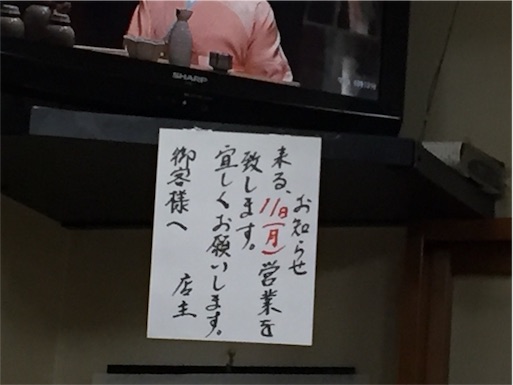 SHARP
お知らせ
来る、11日(月)営業を
致します。
宜しくお願いします。
御客様へ 店主